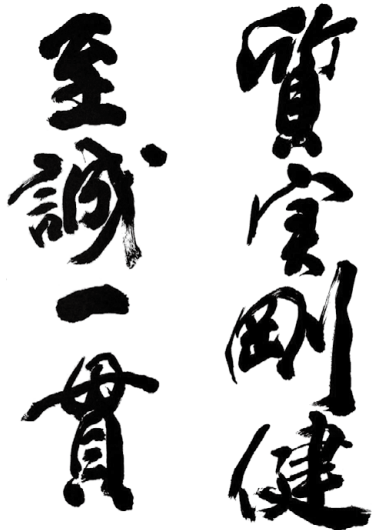 質実剛健
至誠一貫